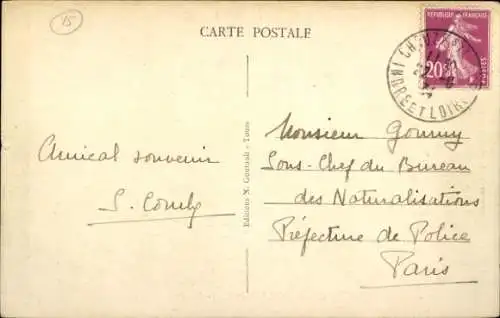 15
CARTE POSTALE
RÉPUBLIQUE FRANÇAISE
20c
POSTES
INDRE ET LOIRE
Amical souvenir
Editions N. Goutiah - Tours
Monsieur
Sous-Chef du Bureau
des Naturalisations
Préfecture de Police
Paris